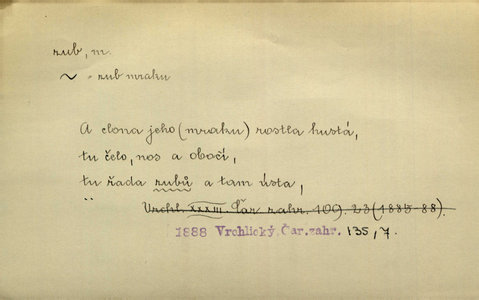 zub, m.
~ = zub mraku
A clona jeho (mraku) rostla hustá,
tu čelo, nos a obočí,
tu řada zubů a tam ústa,
Vrchl. XXXIII. Čar. zahr. 109. 23 (1885-88).
1888 Vrchlický, Čar. zahr. 135, 7.